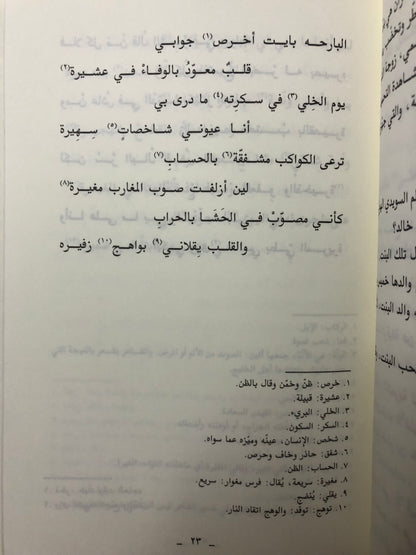 البارحه بايت أخرص(١) جوابي
قلبٌ معوّدٌ بالوفاء في عشيرة(٢)
يوم الخِلي(٣) في سكرته(٤) ما درى بي
أنا عيوني شاخصاتٍ(٥) سهيرة
ترعى الكواكب مشفقّة(٦) بالحسابِ(٧)
لين أزلفت صوب المغارب مغيرة(٨)
كأني مصوّبٌ في الحَشَا بالحرابِ
والقلب يِقلاني(٩) بواهج(١٠) زفيره
١. خرص: ظنّ وخمّن وقال بالظن.
٢. عشيرة: قبيلة.
٣. الخلي: البريء.
٤. السكر: السكون.
٥. شخص: الإنسان، عينُه وميّزه عما سواه.
٦. شفق: حاذر وخاف وحرص.
٧. الحساب: الظن.
٨. مغيرة: سريعة، يُقال: فرس مغوار: سريع.
٩. يقلي: يُنضج.
١٠. توهج: توقّد: والوهج اتقاد النار.
- ٢٣ -
لم السويدي
خالد؟
ل تلك البنت
والدها
، والد البنت،
حب البنت،